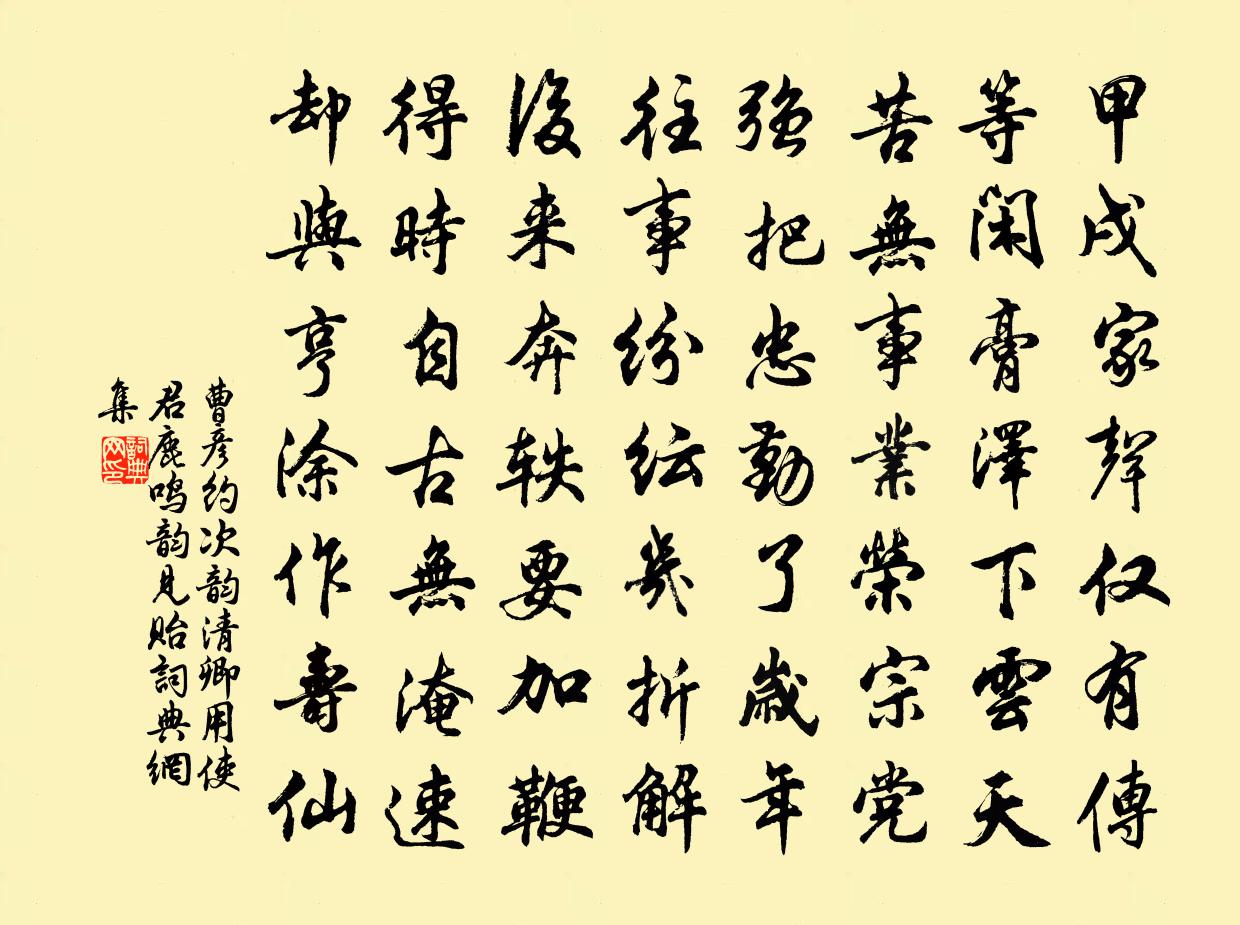 甲戌家聲仅有傳
等閑膏澤下雲天
苦無事業榮宗党
強把忠勤了歲年
往事紛紜幾折解
後来奔軼要加鞭
得時自古無淹速
却與亨涂作壽仙
曹彦约次韵清卿用使
君鹿鸣韵見贻詞典網
集
詞典网印